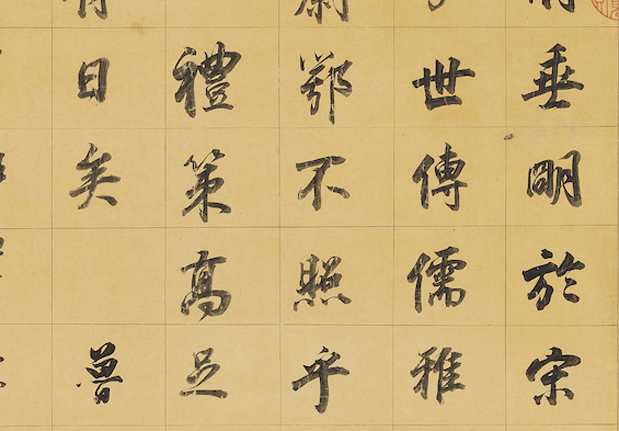 垂明於宋
世傳儒雅
鄂不照乎
禮策高足
日矣 曾